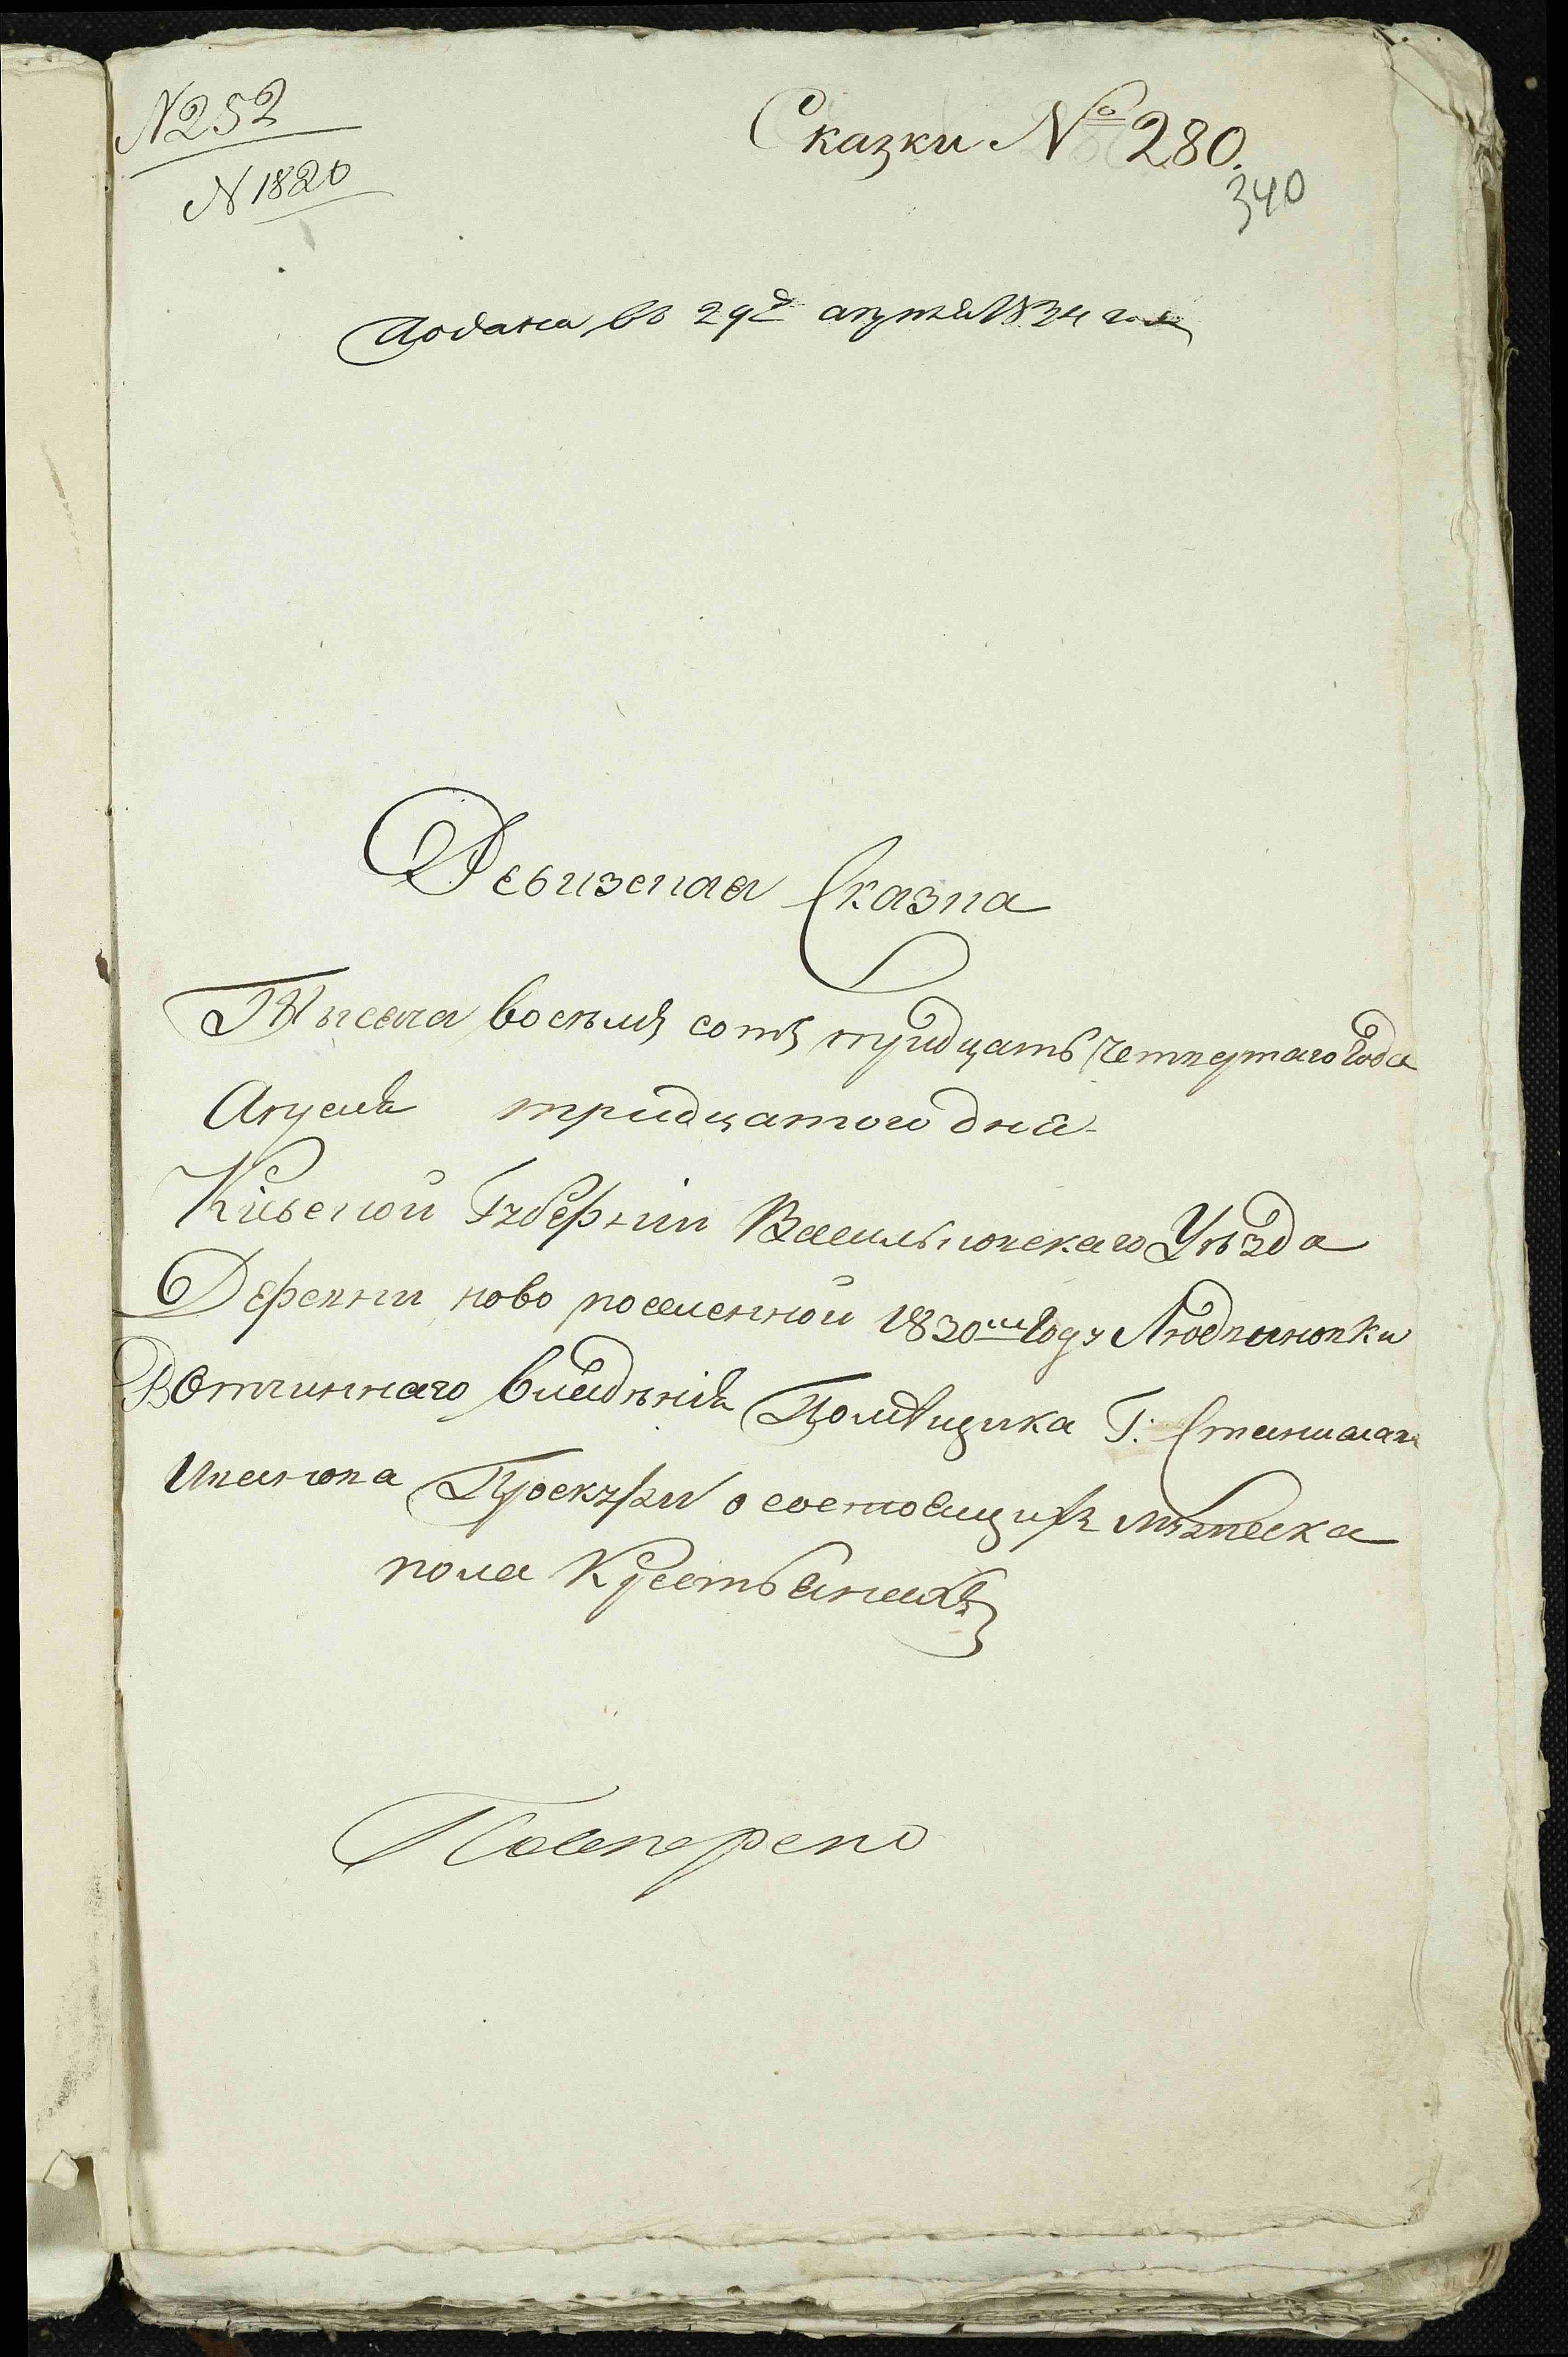 N 252
N 1820
Сказки № 280.
340
Подана въ 29 д. апрѣля 1834 года
Ревизская Сказка
Тысяча восѣмъ сотъ тридцать четвертаго Года
Апреля тридцатого дня
Кіевской Губерніи Васильковскаго Уѣзда
Деревни ново поселенной 1830 Году Людвиновки
Вотчиннаго владѣнія Помѣщика Г: Станислава
Иванова Проскури о состоящихъ мужеска
пола Крестьянахъ